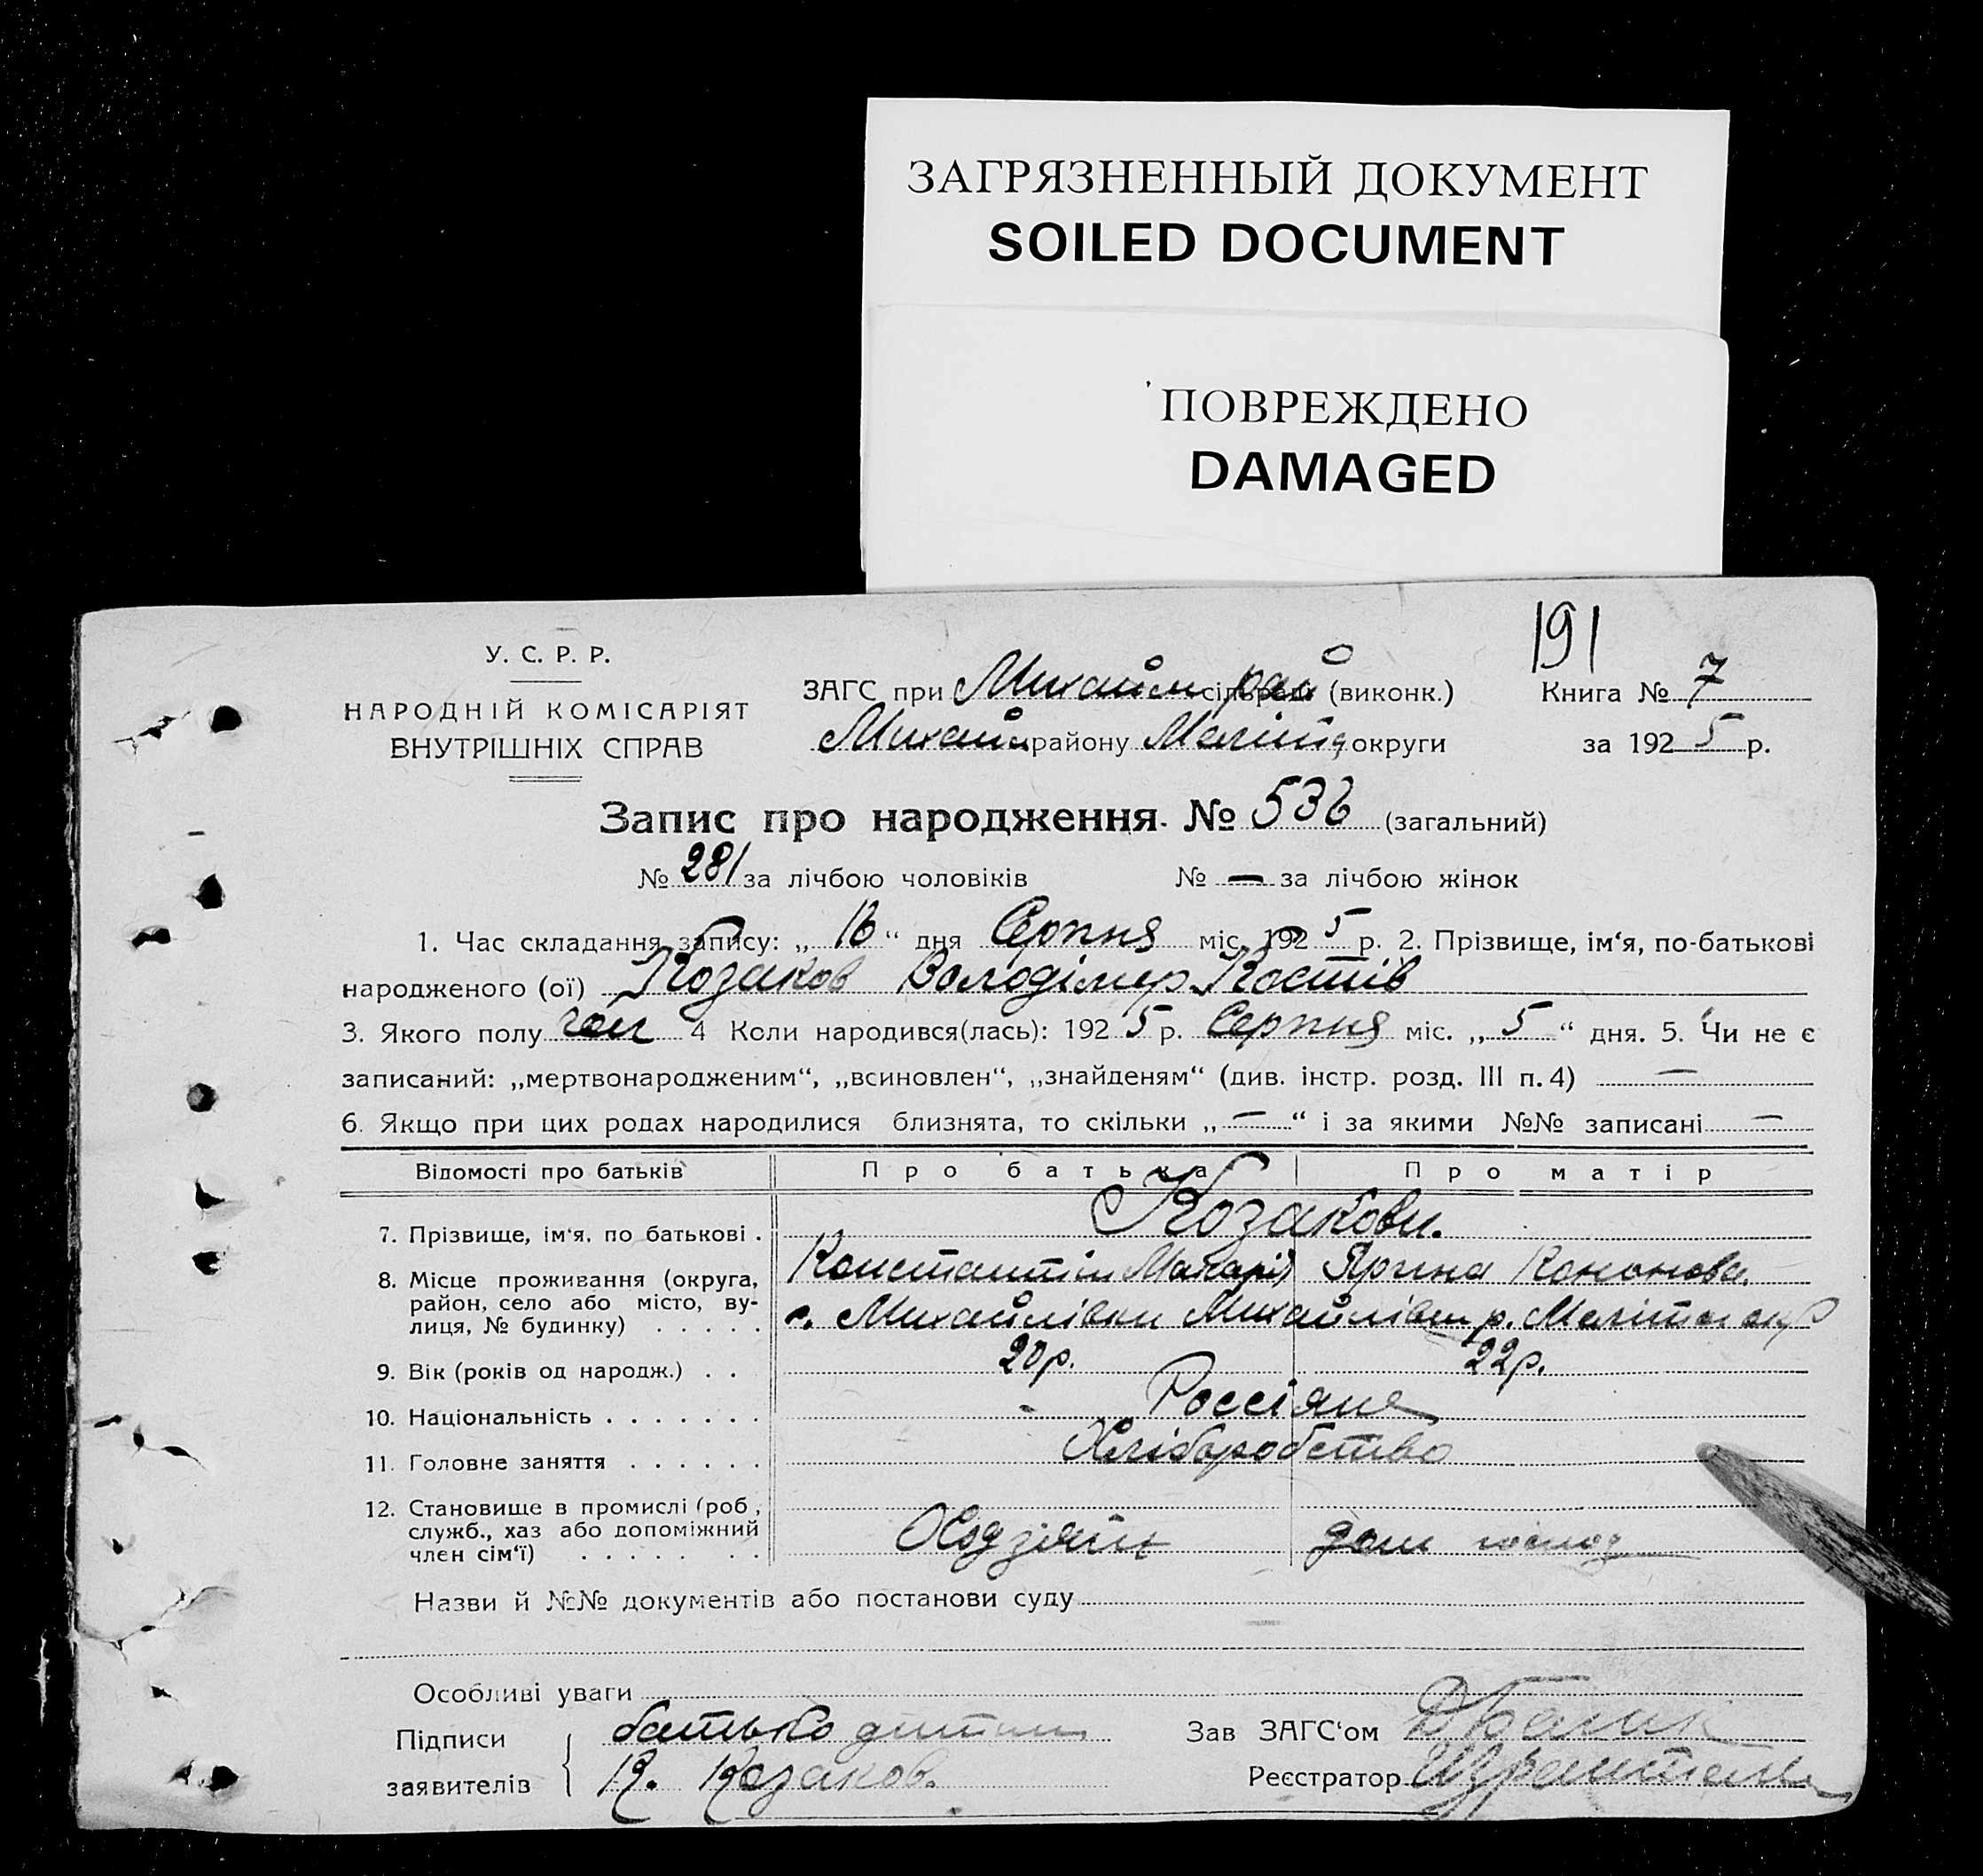 ЗАГРЯЗНЕННЫЙ ДОКУМЕНТ
SOILED DOCUMENT
ПОВРЕЖДЕНО
DAMAGED
191
У. С. Р. Р.
НАРОДНІЙ КОМІСАРІЯТ
ВНУТРІШНІХ СПРАВ
ЗАГС при Михайл рай сільраді (виконк.)
Михайл району Меліт округи
Книга № 7
за 1925 р.
Запис про народження № 536 (загальний)
№ 281 за лічбою чоловіків № — за лічбою жінок
1. Час складання запису: „ 16 “ дня Серпня міс. 1925 р. 2. Прізвище, ім‘я, по-батькові
народженого (ої) Козаков Володімир Костів
3. Якого полу чол 4 Коли народився(лась): 1925 р. Серпня міс. „ 5 “ дня. 5. Чи не є
записаний: „мертвонародженим“, „всиновлен“, „знайденям“ (див. інстр. розд. III п. 4) —
6. Якщо при цих родах народилися близнята, то скільки „ — “ і за якими №№ записані —
Відомості про батьків Про батька Про матір
7. Прізвище, ім‘я, по батькові . Козакови.
Константін Макарів Ярина Кононова.
8. Місце проживання (округа, район, село або місто, ву-
лиця, № будинку) . . . . . с. Михайлівки Михайлівськ р. Меліт окр
9. Вік (років од народж.) . . 20 р. 22 р.
10. Національність . . . . . . . Россіяне
11. Головне заняття . . . . . . Хліборобство
12. Становище в промислі (роб.,
служб., хаз або допоміжний
член сім‘ї) . . . . . . . Ходзяїн дом господ
Назви й №№ документів або постанови суду
Особливі уваги
Підписи батько дитини Зав ЗАГС‘ом
заявителів К. Козаков. Реєстратор